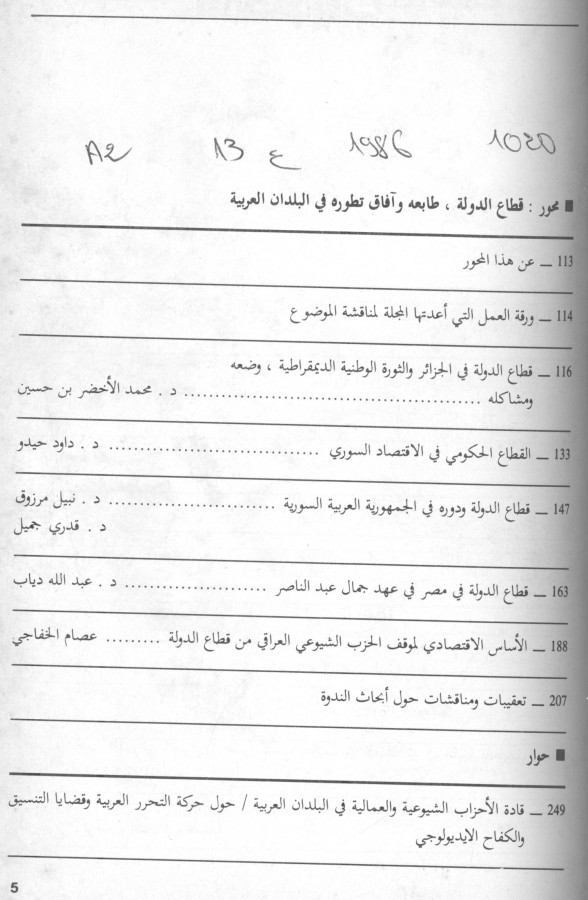 A2 13 ع 1986 1020
■ محور : قطاع الدولة ، طابعه وآفاق تطوره في البلدان العربية
113 ــ عن هذا المحور
114 ــ ورقة العمل التي أعدتها المجلة لمناقشة الموضوع
116 ــ قطاع الدولة في الجزائر والثورة الوطنية الديمقراطية ، وضعه
ومشاكله ................................................ د . محمد الأخضر بن حسين
133 ــ القطاع الحكومي في الاقتصاد السوري .................................. د . داود حيدو
147 ــ قطاع الدولة ودوره في الجمهورية العربية السورية ........................... د . نبيل مرزوق
د . قدري جميل
163 ــ قطاع الدولة في مصر في عهد جمال عبد الناصر ....................... د . عبد الله دياب
188 ــ الأساس الاقتصادي لموقف الحزب الشيوعي العراقي من قطاع الدولة ......... عصام الخفاجي
207 ــ تعقيبات ومناقشات حول أبحاث الندوة
■ حوار
249 ــ قادة الأحزاب الشيوعية والعمالية في البلدان العربية / حول حركة التحرر العربية وقضايا التنسيق
والكفاح الايديولوجي
5